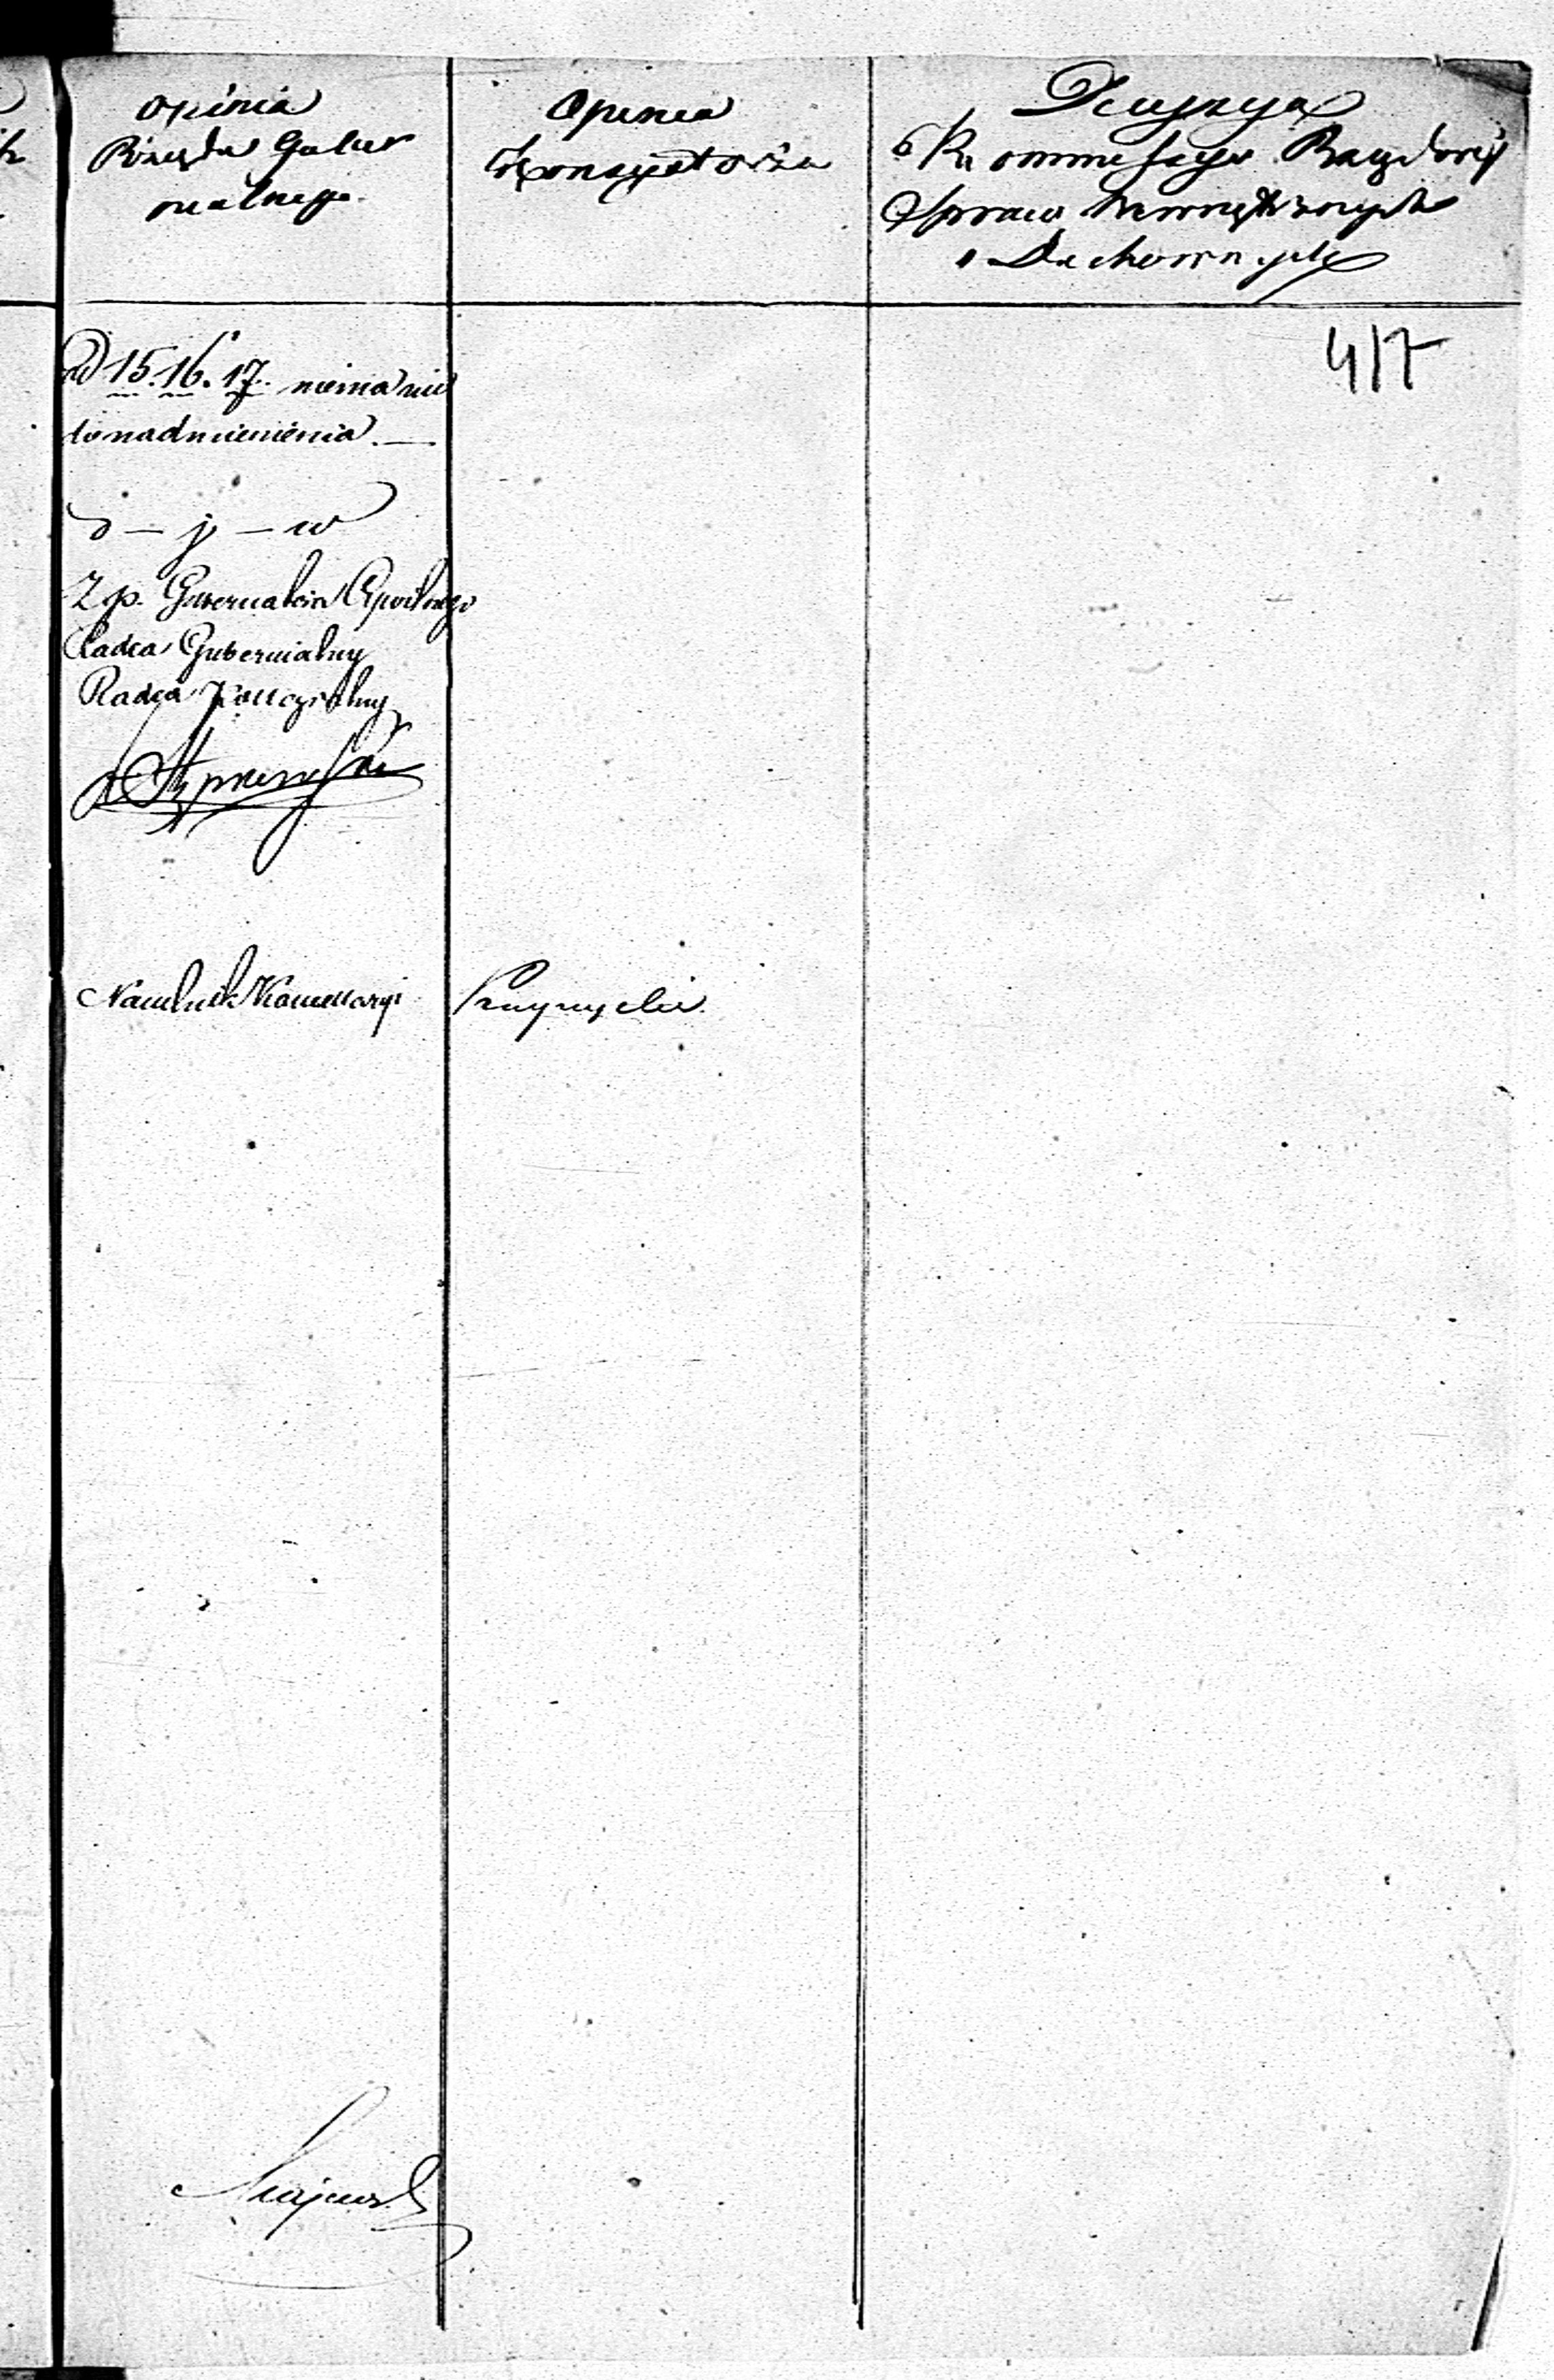 Opinia
Rządu Guber
nialnego.
Opinia
Konsystorza
Decyzya
Kommissyi Rządowej
Spraw Wewnętrznych
i Duchownych
417
ad 15. 16. 17. niema nic
do nadmienienia. —
d — j — w
Z p. Gubernatora Cywilnego
Radca Gubernialny
Radca
Naczelnik Kancellaryi
Majewski